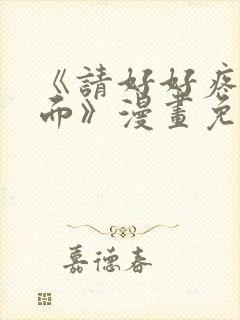 《請好好疼
而》漫畫免
嘉德春